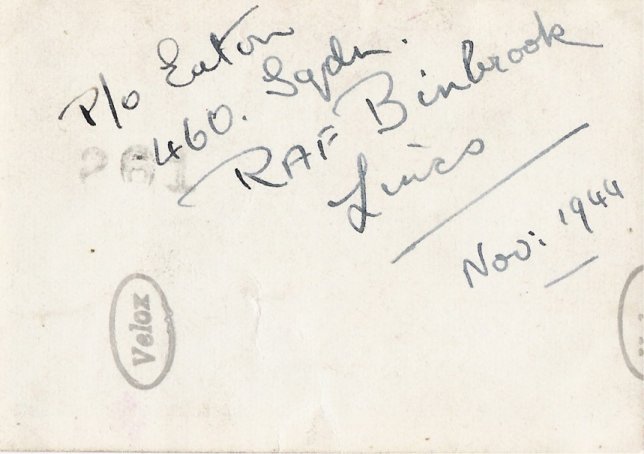 P/o Eaton
460. Sqdn.
RAF Binbrook
Lincs
Nov: 1944
Velox